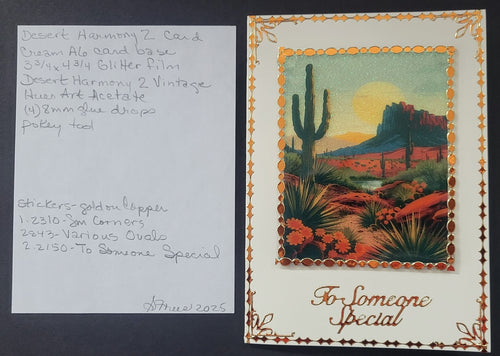 Desert Harmony 2 Card
Cream A6 card base
3 3/4 x 4 3/4 Glitter film
Desert Harmony 2 Vintage
Hues Art Acetate
(4) 8mm glue drops
pokey tool
stickers - gold on copper
1. 2310 - Sm Corners
2243 - Various Ovals
2. 2150 - To Someone Special
2025
To Someone
Special